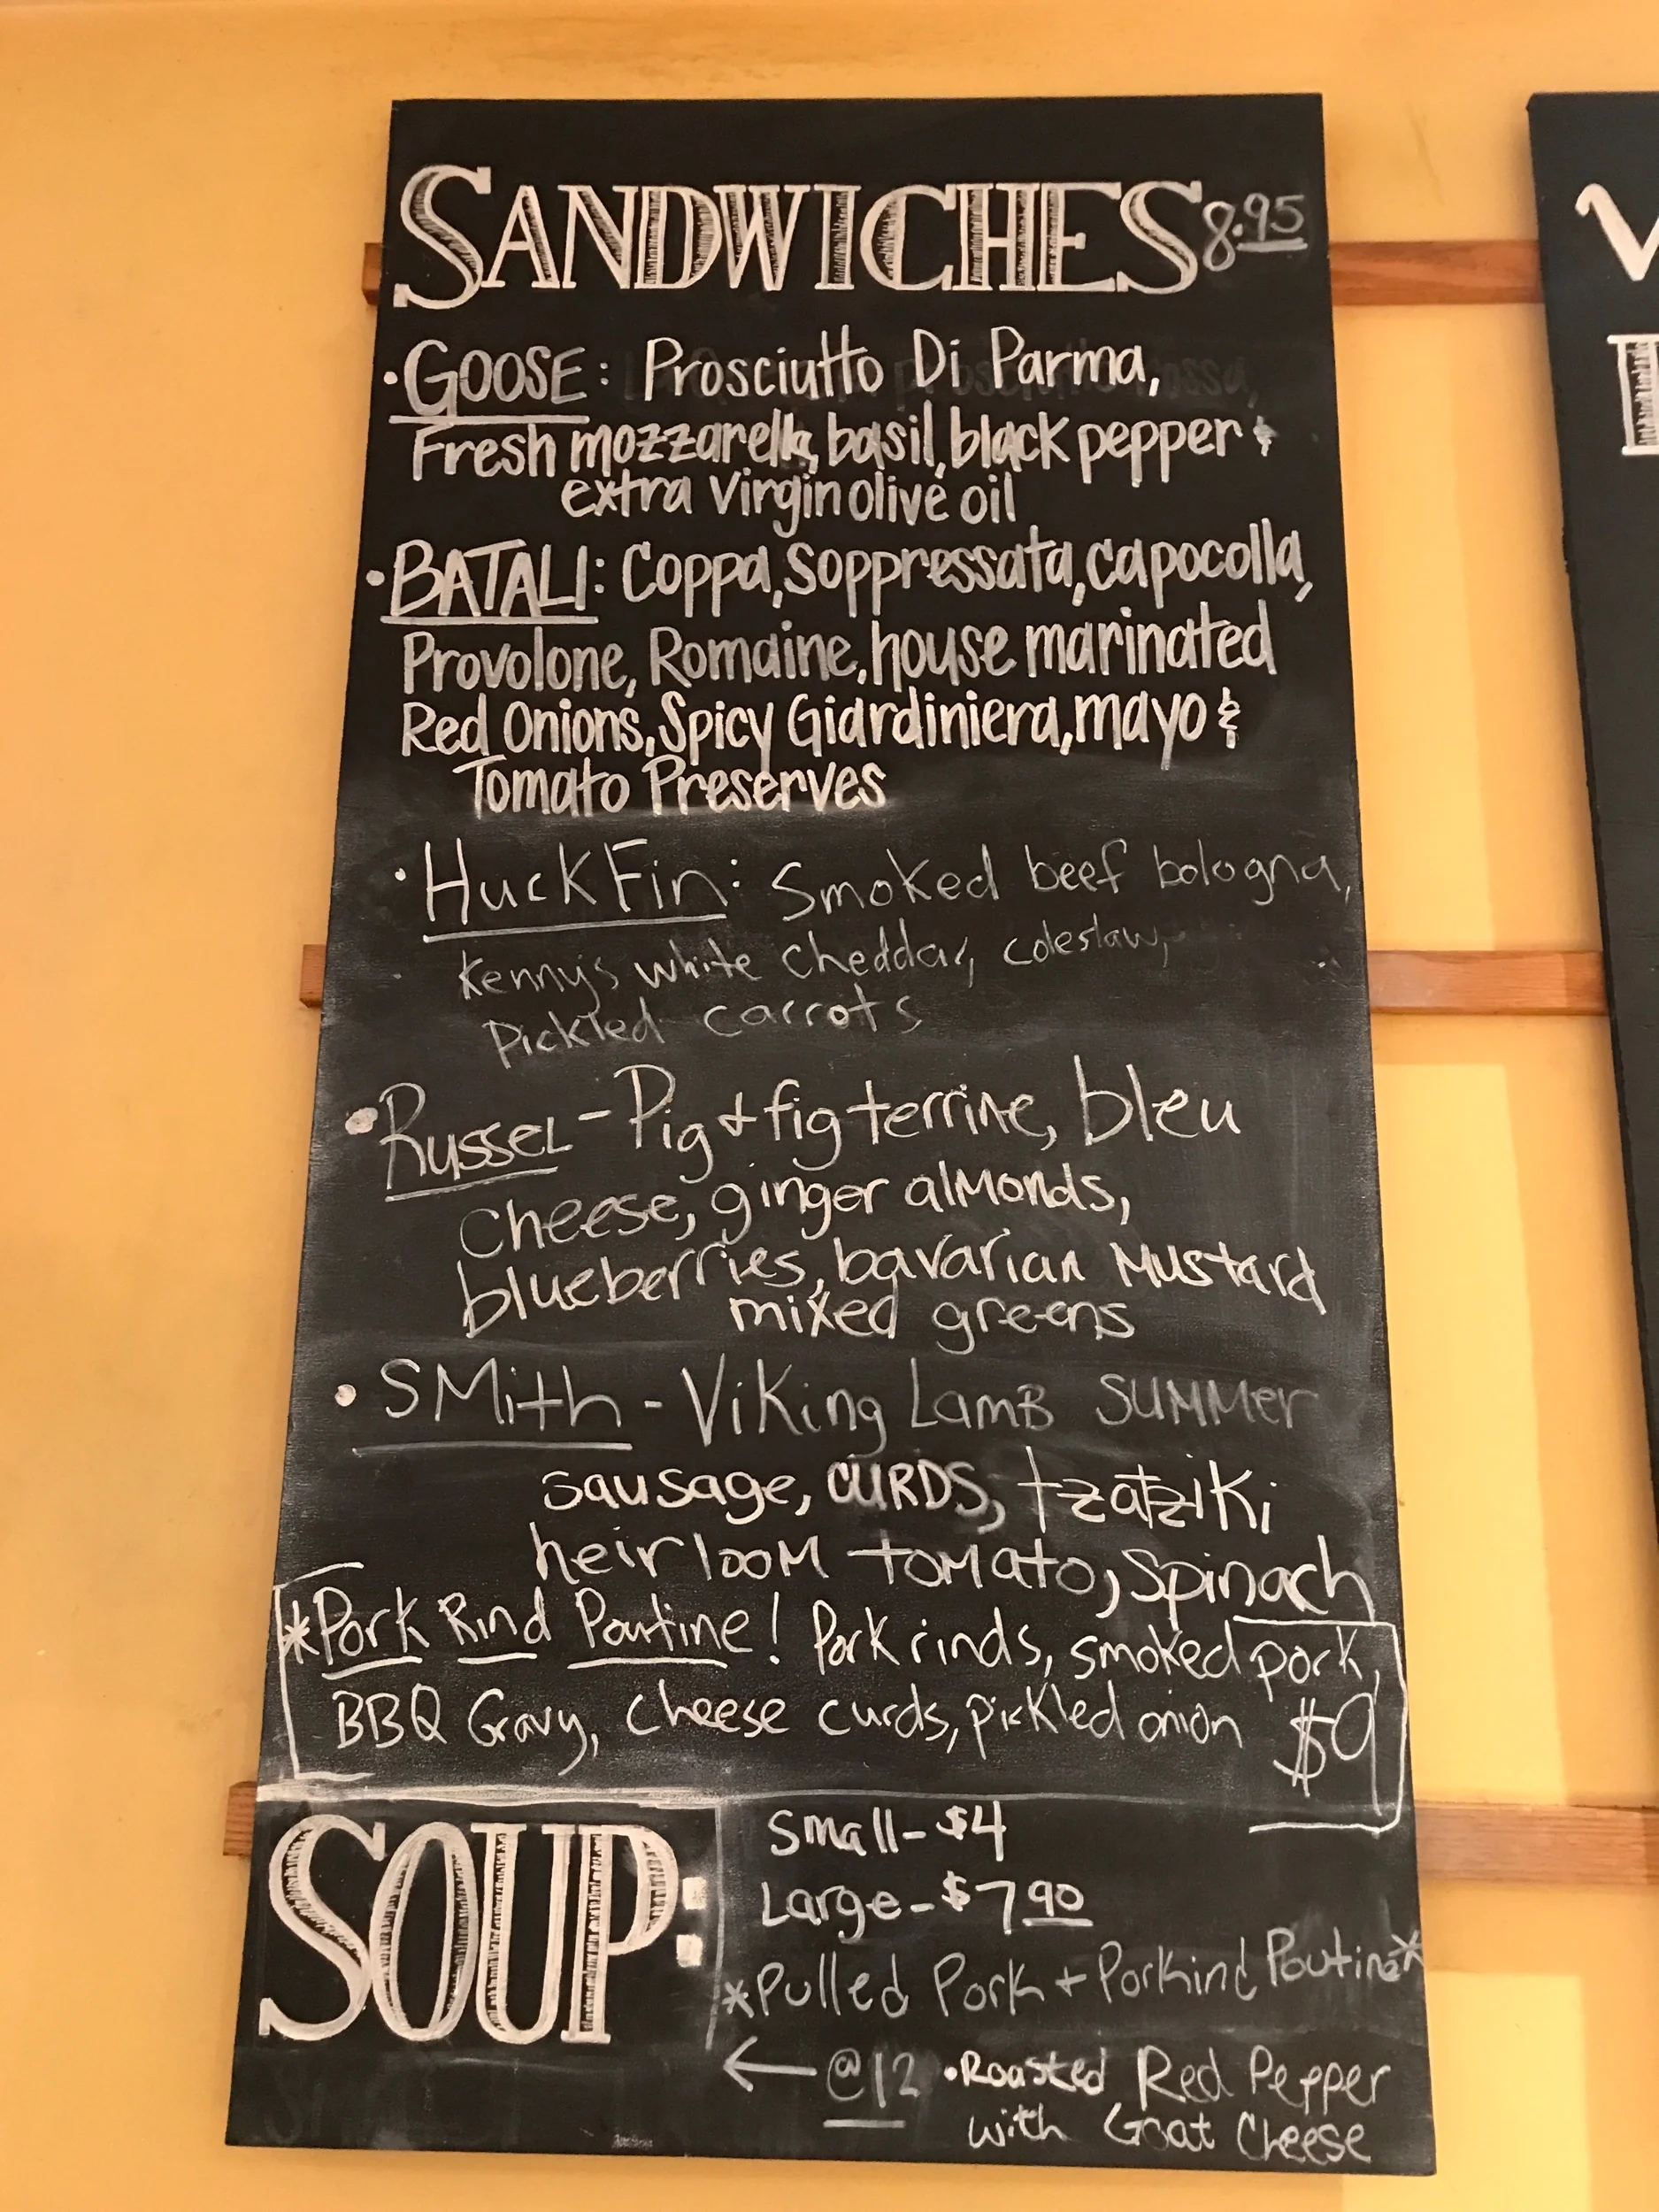 SANDWICHES 8.95
• GOOSE: Prosciutto Di Parma,
Fresh mozzarella, basil, black pepper &
extra Virgin olive oil
• BATALI: Coppa, Soppressata, capocolla,
Provolone, Romaine, house marinated
Red Onions, Spicy Giardiniera, mayo &
Tomato Preserves
• Huck Fin: Smoked beef bologna,
Kenny's white Cheddar, coleslaw,
Pickled carrots
• Russel - Pig & fig terrine, bleu
cheese, ginger almonds,
blueberries, bavarian Mustard
mixed greens
• SMith - Viking LamB SUMMer
sausage, CURDS, tzatziki
heirlooM toMato, spinach
*Pork Rind Poutine! Pork rinds, smoked pork,
BBQ Gravy, cheese curds, pickled onion $9
SOUP:
Small - $4
Large - $7 90
*Pulled Pork + Porkind Poutine*
← @12 • Roasted Red Pepper
with Goat Cheese